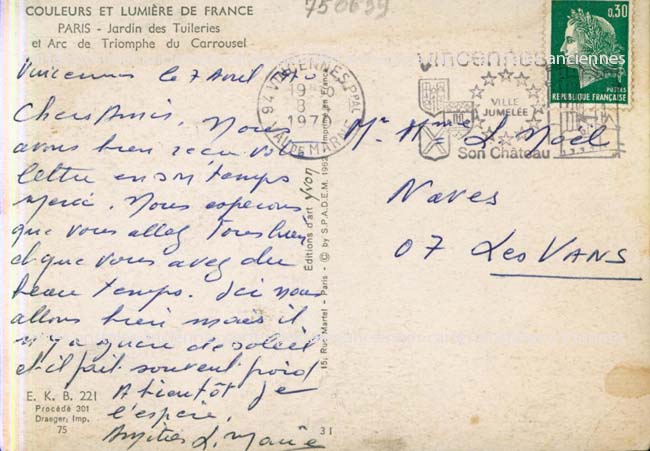 750639
COULEURS ET LUMIÈRE DE FRANCE
PARIS - Jardin des Tuileries
et Arc de Triomphe du Carrousel
Vincennes le 7 Avril
Chers Amis. Nous
avons bien reçu votre
lettre en son temps
merci. Nous espérons
que vous allez tous bien
et que vous avez du
beau temps. Ici nous
allons bien mais il
n'y a guère de soleil
et il fait souvent froid
A bientôt je
l'espère.
Amitiés L. Marie
E. K. B. 221
Procédé 301
Draeger, Imp.
75
31
Editions d'art yvon
15, Rue Martel - Paris - © by S.P.A.D.E.M. 1962
Imprimé en France
94 VINCENNES PPAL
19 H
8
VAL DE MARNE
vincennesanciennes
VILLE
JUMELÉE
Son Château
0,30
POSTES
REPUBLIQUE FRANÇAISE
Mr Mme L. Noël
Naves
07 Les VANS